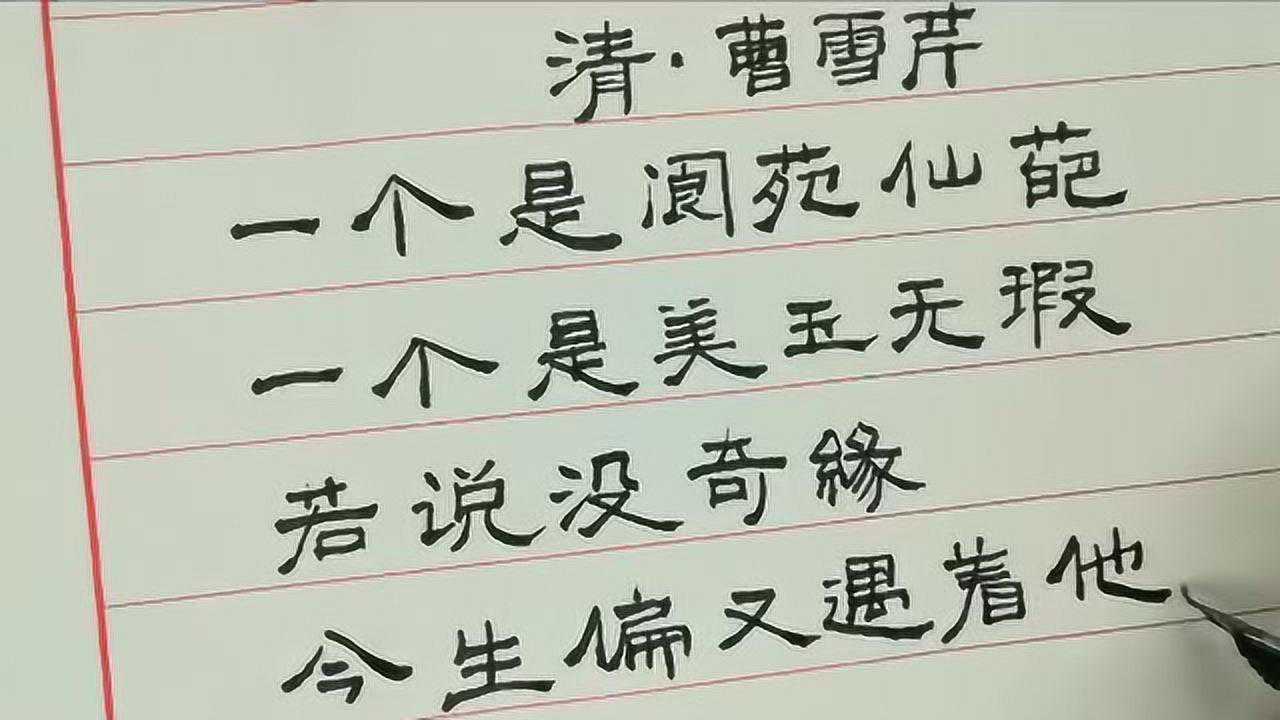 清·曹雪芹
一个是阆苑仙葩
一个是美玉无瑕
若说没奇緣
今生偏又遇着他